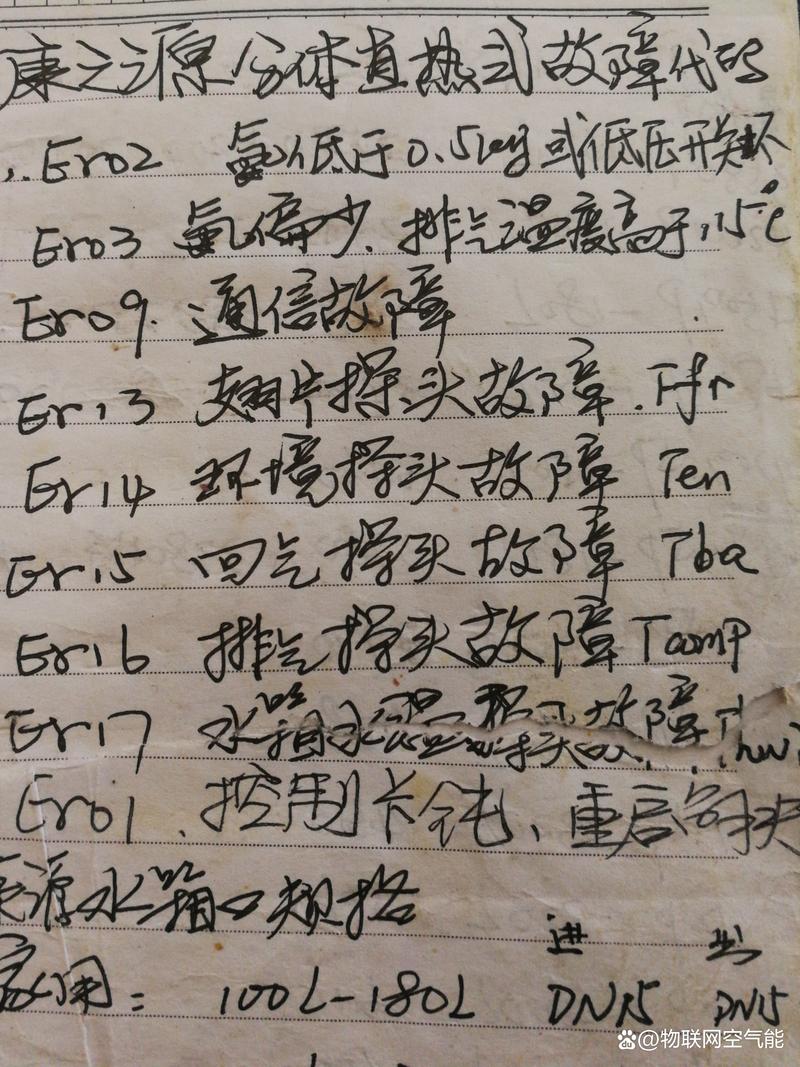 康之源分体直热式故障代码
Er02 氟低于0.5kg或低压开关坏
Er03 氟偏少.排气温度高于115℃
Er09.通信故障
Er13 翅片探头故障.Tfr
Er14 环境探头故障 Ten
Er15 回气探头故障 Tba
Er16 排气探头故障 Tcomp
Er17 水箱水温探头故障
Er01、控制卡钝、重启
源水箱口规格
进 出
家用: 100L-180L DN15 DN15
@物联网空气能